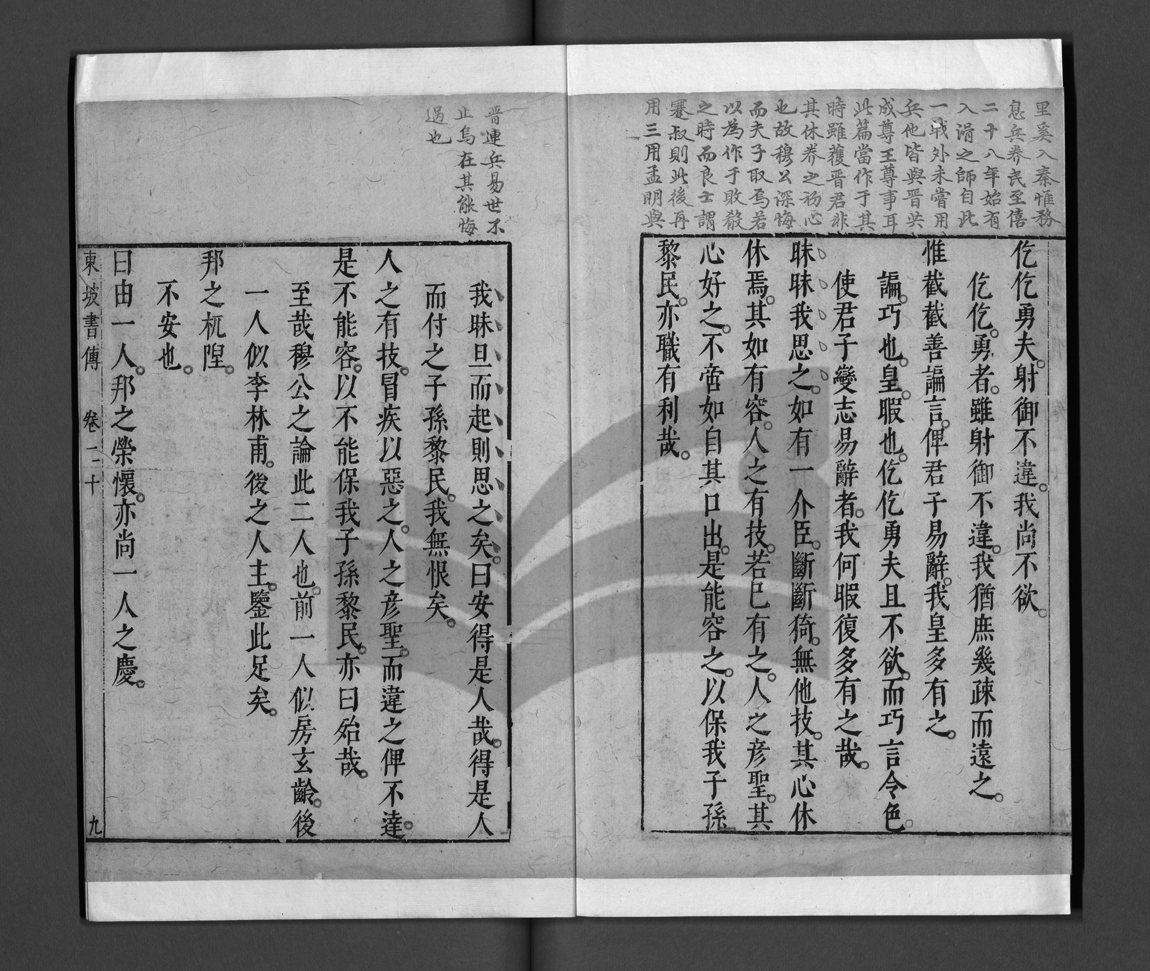 里奚入秦惟務
息兵養民至僖
二十八年始有
入滑之師自此
一戰外未嘗用
兵他皆與晉共
成尊王尊事耳
此篇當作于其
時雖獲晉君非
其休養之初心
也故穆公深悔
而夫子取焉若
以為作于敗殽
之時而良士謂
蹇叔則此後再
用三用孟明與
晉連兵易世不
止烏在其能悔
過也
仡仡勇夫。射御不違。我尚不欲。
仡仡。勇者。雖射御不違。我猶庶幾疎而遠之。
惟截截善諞言。俾君子易辭。我皇多有之。
諞。巧也。皇。暇也。仡仡勇夫且不欲。而巧言令色。
使君子變志易辭者。我何暇復多有之哉。
昧昧我思之。如有一介臣。斷斷猗。無他技。其心休
休焉。其如有容。人之有技。若已有之。人之彦聖。其
心好之。不啻如自其口出。是能容之。以保我子孫
黎民。亦職有利哉。
我昧旦而起則思之矣。曰安得是人哉。得是人
而付之子孫黎民。我無恨矣。
人之有技。冒疾以惡之。人之彦聖。而違之俾不達。
是不能容。以不能保我子孫黎民。亦曰殆哉。
至哉穆公之論此二人也。前一人似房玄齡。後
一人似李林甫。後之人主。鑒此足矣。
邦之杌隉。
不安也。
曰由一人。邦之榮懷。亦尚一人之慶。
東坡書傳 卷二十 九